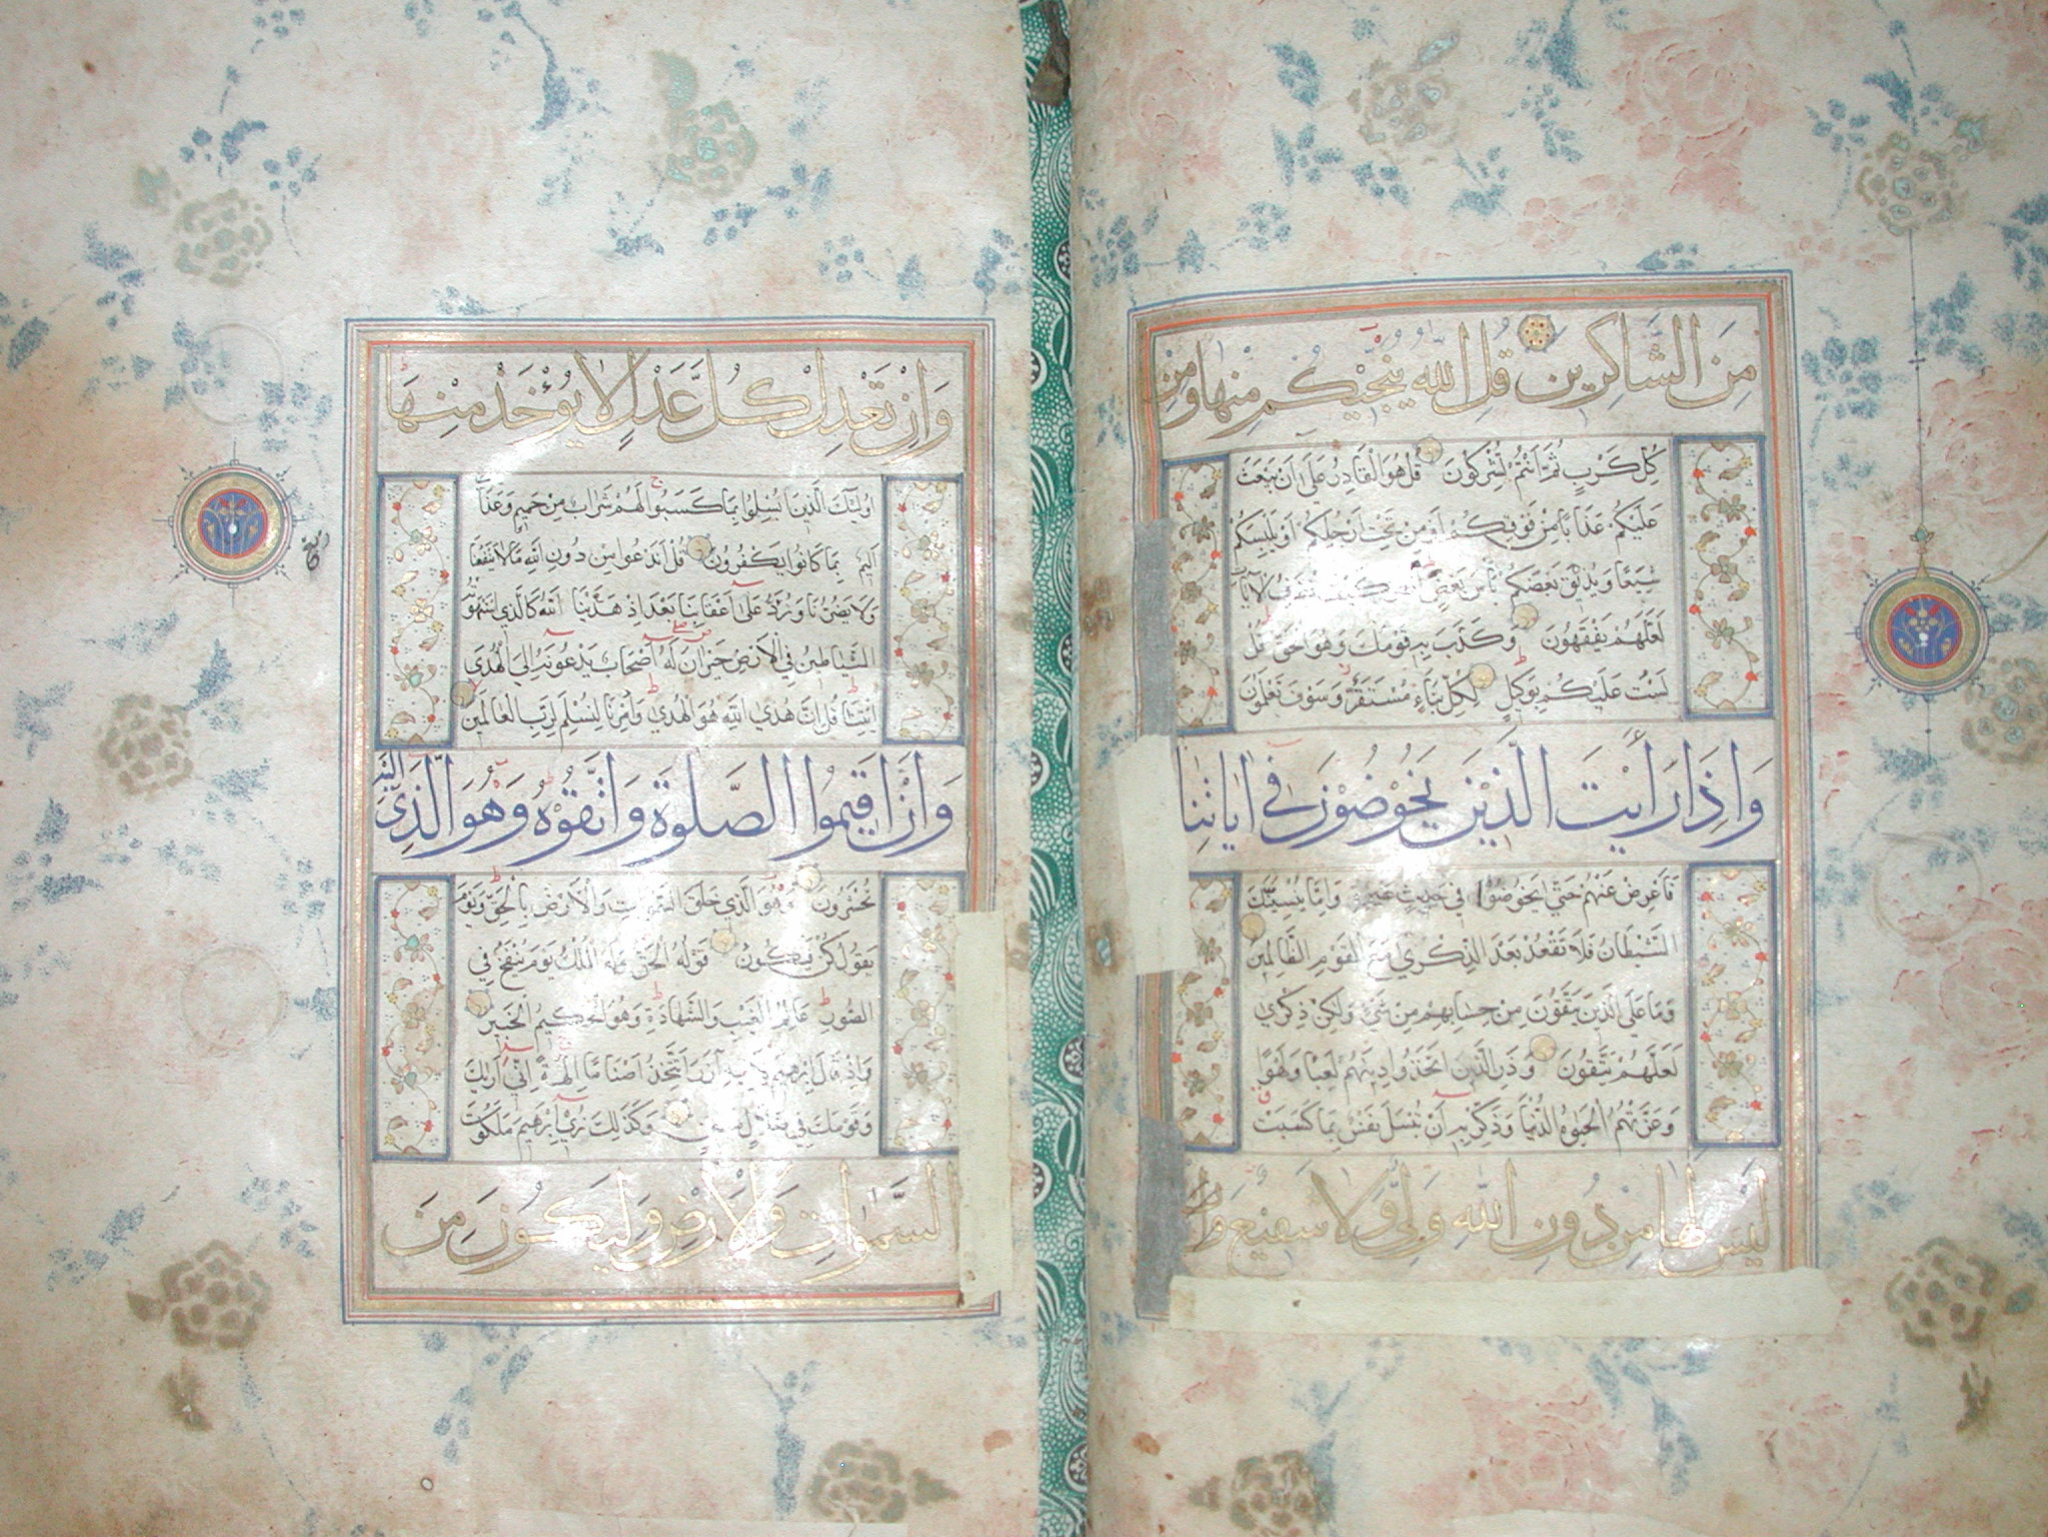 مِنَ الشَّاكِرِينَ قُلِ اللَّهُ يُنَجِّيكُمْ مِنْهَا وَمِنْ
كُلِّ كَرْبٍ ثُمَّ اَنْتُمْ تُشْرِكُونَ قُلْ هُوَ الْقَادِرُ عَلَى اَنْ يَبْعَثَ
عَلَيْكُمْ عَذَابًا مِنْ فَوْقِكُمْ اَوْ مِنْ تَحْتِ اَرْجُلِكُمْ اَوْ يَلْبِسَكُمْ
شِيَعًا وَيُذِيقَ بَعْضَكُمْ بَأْسَ بَعْضٍ كَيْفَ نُصَرِّفُ الْاٰيَاتِ
لَعَلَّهُمْ يَفْقَهُونَ وَكَذَّبَ بِهِ قَوْمُكَ وَهُوَ الْحَقُّ قُلْ
لَسْتُ عَلَيْكُمْ بِوَكِيلٍ لِكُلِّ نَبَاءٍ مُسْتَقَرٌّ وَسَوْفَ تَعْلَمُونَ
وَاِذَا رَاَيْتَ الَّذِينَ يَخُوضُونَ فِي اٰيَاتِنَا
فَاَعْرِضْ عَنْهُمْ حَتّٰى يَخُوضُوا فِي حَدِيثٍ غَيْرِهِ وَاِمَّا يُنْسِيَنَّكَ
الشَّيْطَانُ فَلَا تَقْعُدْ بَعْدَ الذِّكْرٰي مَعَ الْقَوْمِ الظَّالِمِينَ
وَمَا عَلَى الَّذِينَ يَتَّقُونَ مِنْ حِسَابِهِمْ مِنْ شَيْءٍ وَلٰكِنْ ذِكْرٰي
لَعَلَّهُمْ يَتَّقُونَ وَذَرِ الَّذِينَ اتَّخَذُوا دِينَهُمْ لَعِبًا وَلَهْوًا
وَغَرَّتْهُمُ الْحَيٰوةُ الدُّنْيَا وَذَكِّرْ بِهِ اَنْ تُبْسَلَ نَفْسٌ بِمَا كَسَبَتْ
لَيْسَ لَهَا مِنْ دُونِ اللَّهِ وَلِيٌّ وَلَا شَفِيعٌ
وَاِنْ تَعْدِلْ كُلَّ عَدْلٍ لَا يُؤْخَذْ مِنْهَا
اُولٰئِكَ الَّذِينَ اُبْسِلُوا بِمَا كَسَبُوا لَهُمْ شَرَابٌ مِنْ حَمِيمٍ وَعَذَابٌ
اَلِيمٌ بِمَا كَانُوا يَكْفُرُونَ قُلْ اَنَدْعُوا مِنْ دُونِ اللَّهِ مَا لَا يَنْفَعُنَا
وَلَا يَضُرُّنَا وَنُرَدُّ عَلٰى اَعْقَابِنَا بَعْدَ اِذْ هَدٰينَا اللَّهُ كَالَّذِي اسْتَهْوَتْهُ
الشَّيَاطِينُ فِي الْاَرْضِ حَيْرَانَ لَهُ اَصْحَابٌ يَدْعُونَهُ اِلَى الْهُدَى
ائْتِنَا قُلْ اِنَّ هُدَى اللَّهِ هُوَ الْهُدٰى وَاُمِرْنَا لِنُسْلِمَ لِرَبِّ الْعَالَمِينَ
وَاَنْ اَقِيمُوا الصَّلٰوةَ وَاتَّقُوهُ وَهُوَ الَّذِي اِلَيْهِ
تُحْشَرُونَ وَهُوَ الَّذِي خَلَقَ السَّمٰوَاتِ وَالْاَرْضَ بِالْحَقِّ وَيَوْمَ
يَقُولُ كُنْ فَيَكُونُ قَوْلُهُ الْحَقُّ وَلَهُ الْمُلْكُ يَوْمَ يُنْفَخُ فِي
الصُّورِ عَالِمُ الْغَيْبِ وَالشَّهَادَةِ وَهُوَ الْحَكِيمُ الْخَبِيرُ
وَاِذْ قَالَ اِبْرٰهِيمُ لِاَبِيهِ اٰزَرَ اَتَتَّخِذُ اَصْنَامًا اٰلِهَةً اِنِّي اَرٰيكَ
وَقَوْمَكَ فِي ضَلَالٍ مُبِينٍ وَكَذٰلِكَ نُرِي اِبْرٰهِيمَ مَلَكُوتَ
السَّمٰوَاتِ وَالْاَرْضِ وَلِيَكُونَ مِنَ